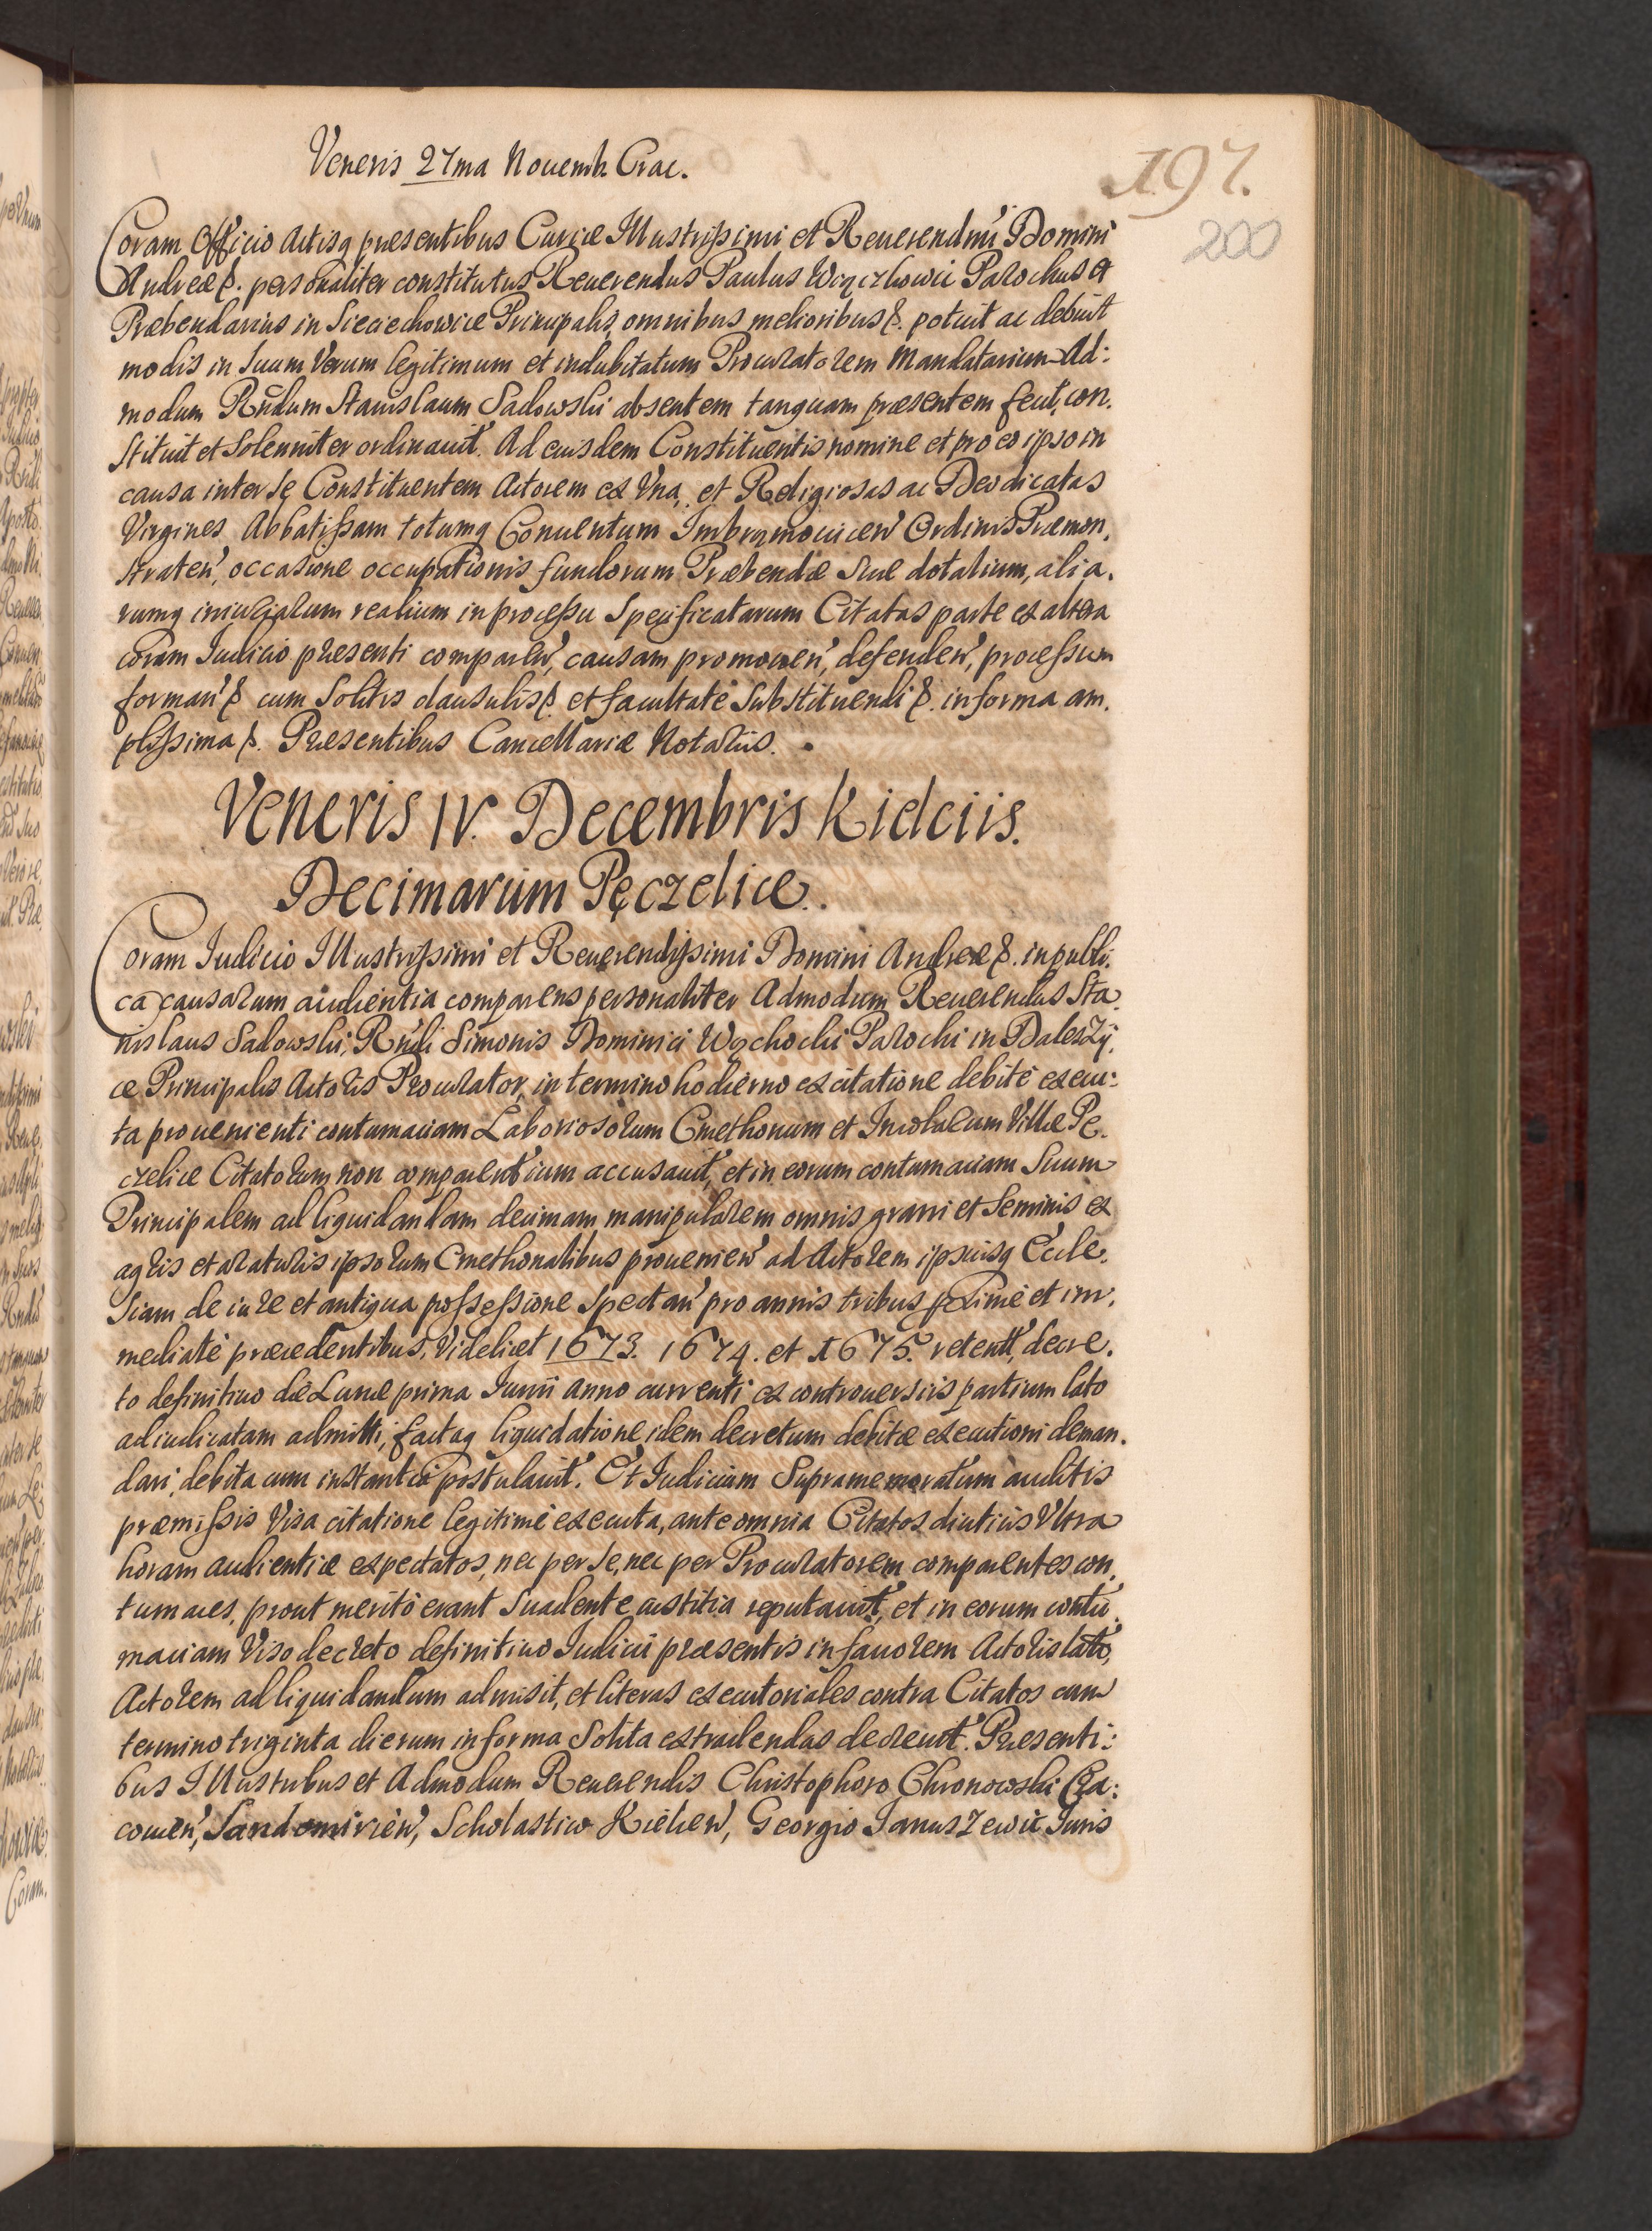 Veneris 27ma Nouemb. Crac.
197.
200
Coram Officio Actisq presentibus Curiæ Illustrissimi et Reuerendmi Domini
Andreæ &. personaliter constitutus Reuerendus Paulus Parochus et
Præbendarius in Sieciechowice Principalis, omnibus melioribus &. potuit ac debuit
modis in Suum Verum legitimum et indubitatum Procuratorem Mandatarium Ad:
modum Rndum Stanislaum Sadowski absentem tanquam præsentem fecit, con.
stituit et Solenniter ordinauit. Ad eiusdem Constituentis nomine et pro eo ipso in
causa inter Se Constituentem Actorem ex Vna, et Religiosas ac Deodicatas
Virgines Abbatissam totumq Conuentum Imbramouicen' Ordinis Præmon,
straten', occasione occupationis fundorum Præbendæ Suæ dotalium, alia.
rumq iniuriarum realium in processu Specificatarum Citatas parte ex altera
coram Iudicio presenti comparen', causam promouen', defenden', processum
forman' & cum Solitis clausulis &. et facultate Substituendi &. in forma am.
plissima &. Præsentibus Cancellariæ Notariis.
Veneris IV. Decembris Kielciis.
Decimarum Pęczelice.
Coram Iudicio Illustrissimi et Reuerendissimi Domini Andreæ &. in publi.
ca causarum audientia comparens personaliter Admodum Reuerendus Sta
nislaus Sadowski, Rndi Simonis Dominici Wąchocki Parochi in Daleszy,
ce Principalis Actoris Procurator, in termino hodierno ex citatione debitè execu:
ta prouenienti contumaciam Laboriosorum Cmethonum et Incolarum Villæ Pę.
czelice Citatorum non comparentium accusauit, et in eorum contumaciam Suum
Principalem ad liquidandam decimam manipularem omnis grani et Seminis ex
agris et araturis ipsorum Cmethonalibus prouenien' ad Actorem ipsiusq Eccle.
siam de iure et antiqua possessione Spectan' pro annis tribus pximè et im.
mediatè præcedentibus, Videlicet 1673. 1674. et 1675. retent', decre.
to definitiuo die Lunæ prima Iunii anno currenti ex controuersiis partium lato
adiudicatam admitti, factaq liquidatione idem decretum debitæ executioni deman.
dari, debita cum instantia postulauit. Et Iudicium Supramemoratum auditis
præmissis Visa citatione legitimè executa, ante omnia Citatos diutius Vltra
horam audientiæ expectatos, nec per Se, nec per Procuratorem comparentes con,
tumaces, prout meritò erant Suadente iustitia reputauit, et in eorum contu.
maciam Viso decreto definitiuo Iudicii præsentis in fauorem Actoris lato,
Actorem ad liquidandum admisit, et literas executoriales contra Citatos cum
termino triginta dierum in forma Solita extradendas decreuit. Presenti:
bus Illustribus et Admodum Reuerendis Christophoro Chronowski Cra:
couien', Sandomirien', Scholastico Kielcen', Georgio Januszewic Iuris